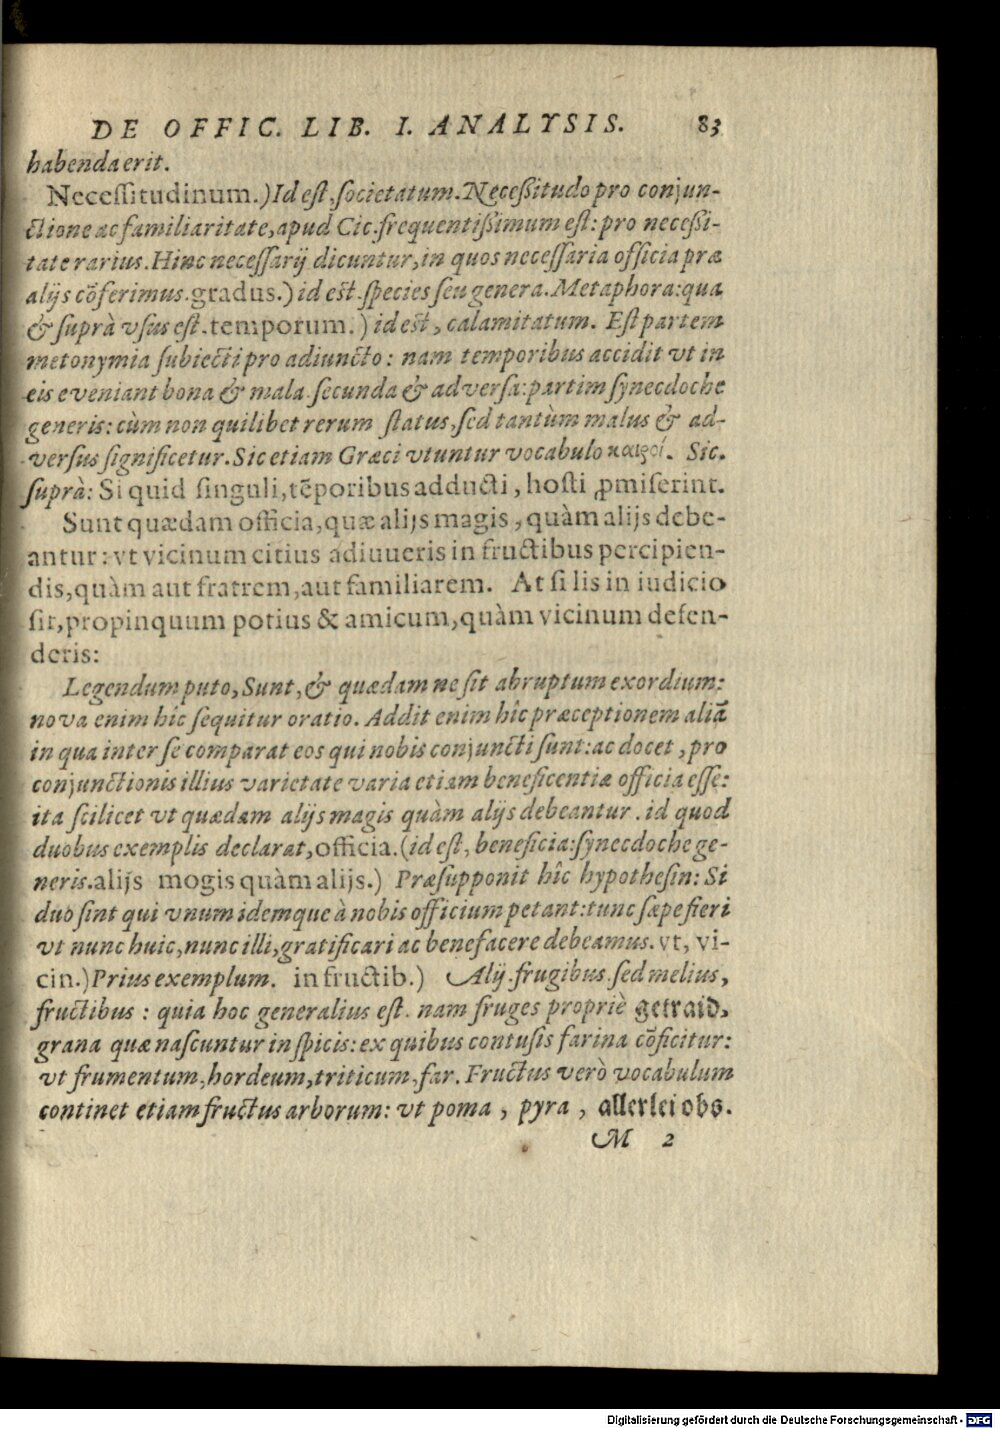 DE OFFIC. LIB. I. ANALYSIS. 83
habenda erit.
Necessitudinum.) Id est, societatum. Necessitudo pro conjun-
ctione ac familiaritate, apud Cic. frequentissimum est: pro necessi-
tate rarius. Hinc necessarij dicuntur, in quos necessaria officia præ
alijs cōferimus. gradus.) id est. species seu genera. Metaphora: qua
& suprà usus est. temporum.) id est, calamitatum. Est partem
metonymia subiecti pro adiuncto: nam temporibus accidit vt in
eis eveniant bona & mala. secunda & adversa: partim synecdoche
generis: cùm non quilibet rerum status, sed tantùm malus & ad-
versus significetur. Sic etiam Græci vtuntur vocabulo καιροί. Sic.
suprà: Si quid singuli, tēporibus adducti, hosti ꝓmiserint.
Sunt quædam officia, quæ alijs magis, quàm alijs debe-
antur: vt vicinum citius adiuueris in fructibus percipien-
dis, quàm aut fratrem, aut familiarem. At si lis in iudicio
sit, propinquum potius & amicum, quàm vicinum defen-
deris:
Legendum puto, Sunt, & quædam ne sit abruptum exordium:
nova enim hîc sequitur oratio. Addit enim hîc præceptionem aliā
in qua inter se comparat eos qui nobis conjuncti sunt: ac docet, pro
conjunctionis illius varietate varia etiam beneficentiæ officia esse:
ita scilicet vt quædam alijs magis quàm alijs debeantur. id quod
duobus exemplis declarat, officia. (id est, beneficia: synecdoche ge-
neris. alijs mogis quàm alijs.) Præsupponit hîc hypothesin: Si
duo sint qui vnum idemque à nobis officium petant: tunc sæpe fieri
vt nunc huic, nunc illi, gratificari ac benefacere debeamus. vt, vi-
cin.) Prius exemplum. in fructib.) Alij. frugibus. sed melius,
fructibus: quia hoc generalius est. nam fruges propriè getraid,
grana quæ nascuntur in spicis: ex quibus contusis farina cōficitur:
vt frumentum, hordeum, triticum, far. Fructus verò vocabulum
continet etiam fructus arborum: vt poma, pyra, allerlei obs.
M 2
Digitalisierung gefördert durch die Deutsche Forschungsgemeinschaft - DFG